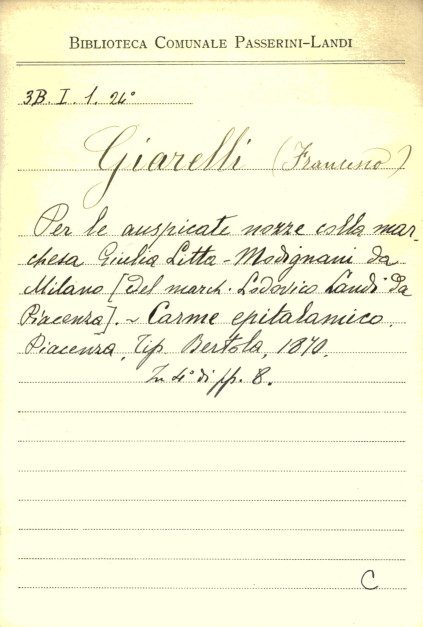 BIBLIOTECA COMUNALE PASSERINI-LANDI
3B. I. 1. 26°
Giarelli (Francesco)
Per le auspicate nozze colla mar-
chesa Giulia Litta-Modignani da
Milano [del march. Lodovico Landi da
Piacenza]. ~ Carme epitalamico.
Piacenza, Tip. Bertola, 1870.
In 4° di pp. 8.
C